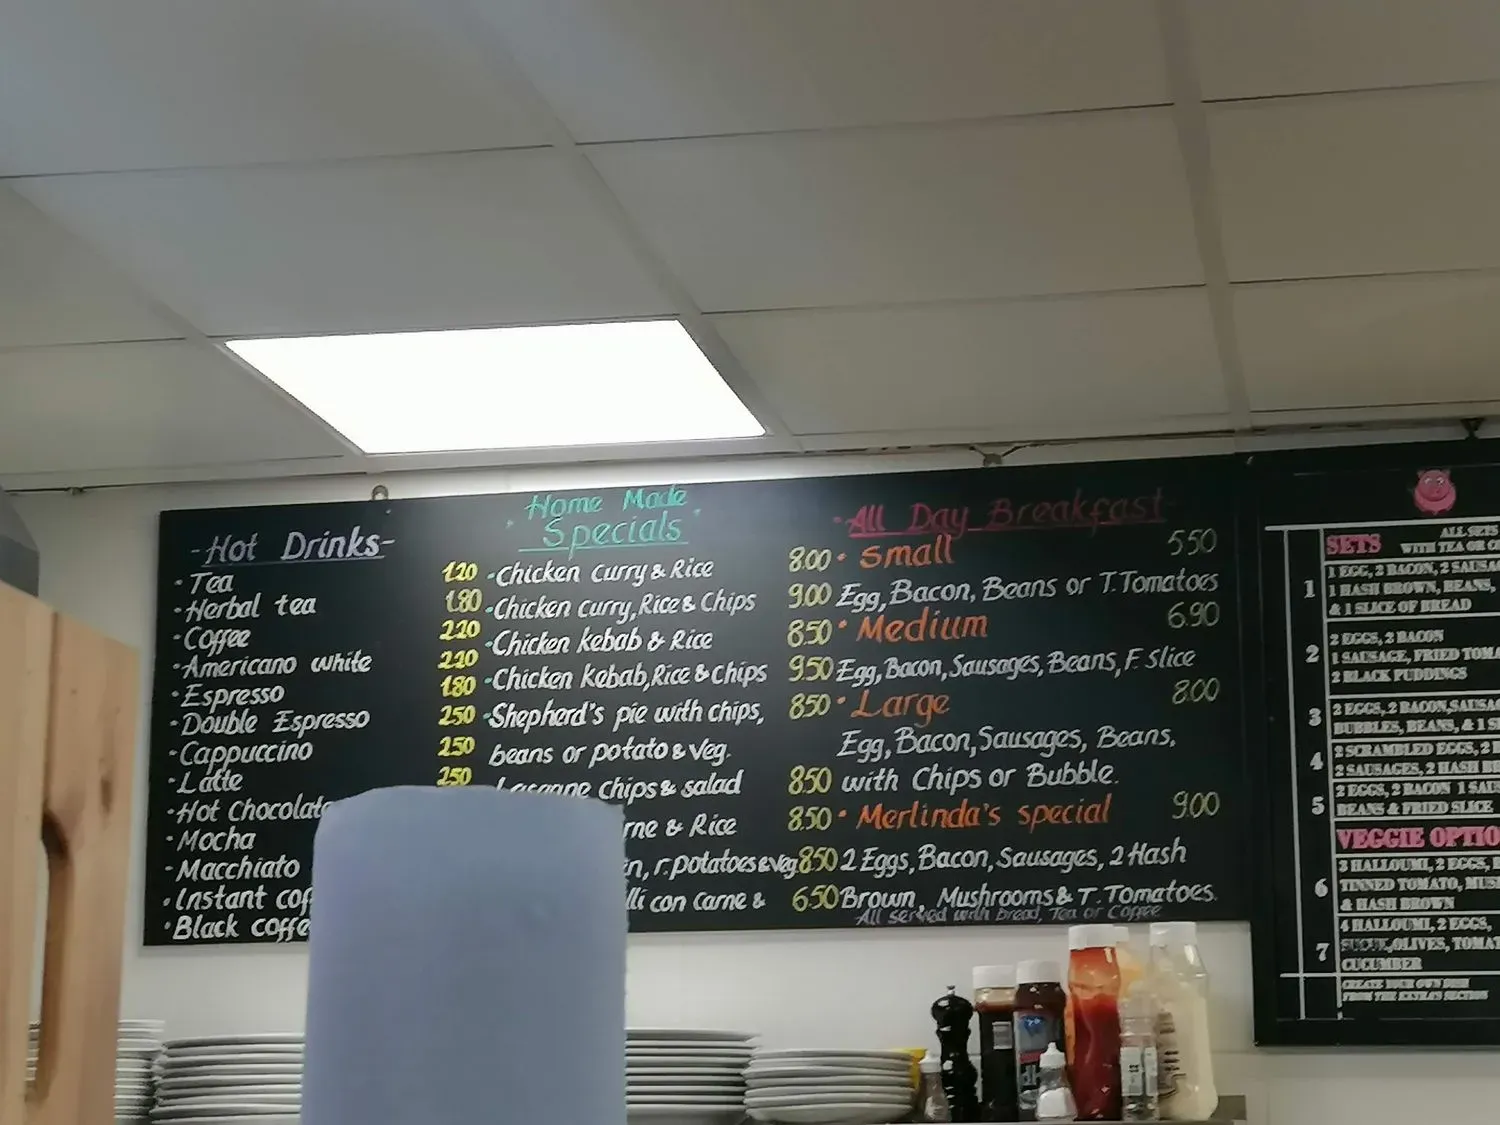 -Hot Drinks-
· Tea 1.20
· Herbal tea 1.80
· Coffee 2.20
· Americano white 2.20
· Espresso 1.80
· Double Espresso 2.50
· Cappuccino 2.50
· Latte 2.50
· Hot Chocolate
· Mocha
· Macchiato
· Instant
· Black coffe
· Home Made ·
Specials
· Chicken curry & Rice 8.00
· Chicken curry, Rice & Chips 9.00
· Chicken kebab & Rice 8.50
· Chicken kebab, Rice & Chips 9.50
· Shepherd's pie with chips, 8.50
beans or potato & veg.
chips & salad 8.50
& Rice 8.50
r. potatoes & veg. 8.50
con carne & 6.50
· All Day Breakfast ·
· Small 5.50
Egg, Bacon, Beans or T. Tomatoes
· Medium 6.90
Egg, Bacon, Sausages, Beans, F. Slice
· Large 8.00
Egg, Bacon, Sausages, Beans,
with Chips or Bubble.
· Merlinda's special 9.00
2 Eggs, Bacon, Sausages, 2 Hash
Brown, Mushrooms & T. Tomatoes.
All served with bread, Tea or Coffee
SETS
ALL SETS
WITH TEA OR
1 1 EGG, 2 BACON, 2 SAUSA
1 HASH BROWN, BEANS,
& 1 SLICE OF BREAD
2 2 EGGS, 2 BACON
1 SAUSAGE, FRIED TOMA
2 BLACK PUDDINGS
3 2 EGGS, 2 BACON, SAUSA
BUBBLES, BEANS, & 1
4 2 SCRAMBLED EGGS, 2
2 SAUSAGES, 2 HASH
5 2 EGGS, 2 BACON 1 SAU
BEANS & FRIED SLICE
VEGGIE OPTIO
6 3 HALLOUMI, 2 EGGS,
TINNED TOMATO, MUS
& HASH BROWN
7 4 HALLOUMI, 2 EGGS,
OLIVES, TOMA
CUCUMBER
CREATE YOUR OWN DISH
FROM THE EXTRA'S SECTION